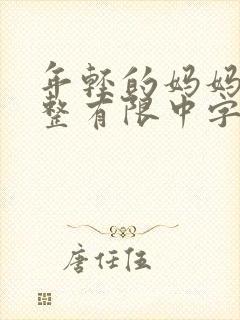 年轻的妈妈
整有限中字
唐任伍